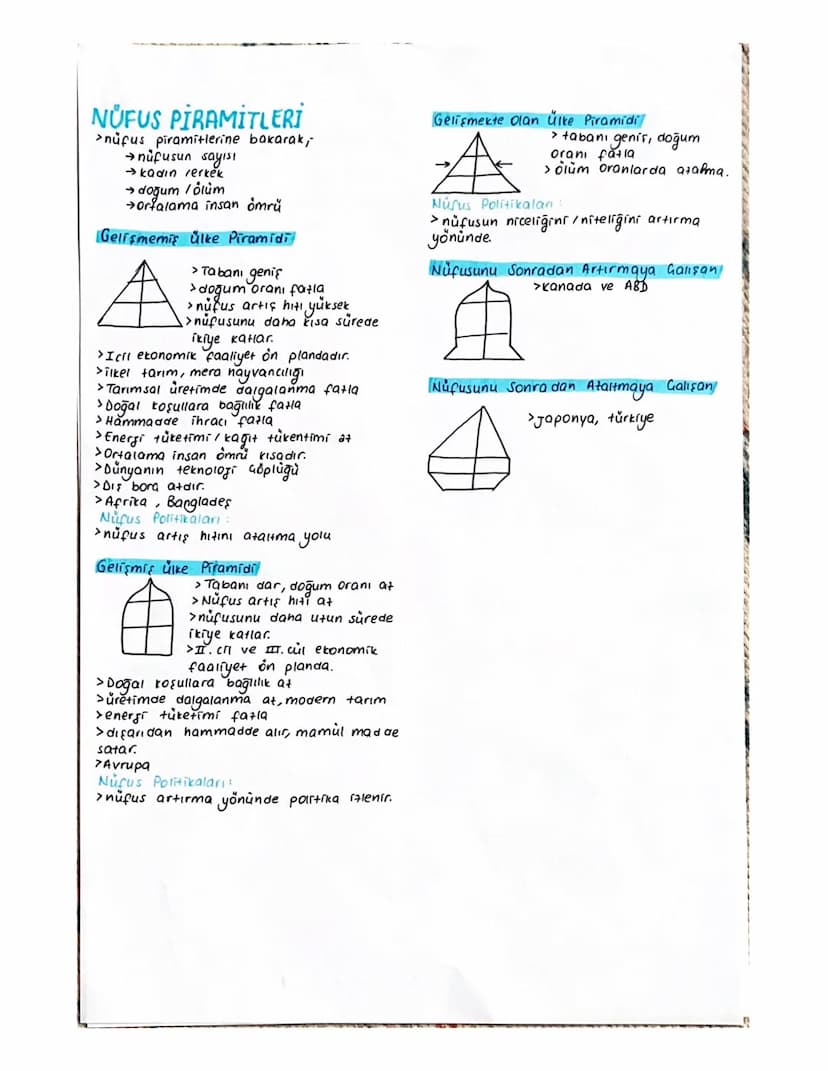 NÜFUS PİRAMİTLERİ
>nüfus piramitlerine bakarak;
→nüfusun sayısı
→kadın /erkek
→doğum / ölüm
→ortalama insan ömrü
Gelişmemiş ülke Piramidi
>Tabanı geniş
>doğum oranı fazla
>nüfus artış hızı yüksek
>nüfusunu daha kısa sürede
ikiye katlar.
>1.cil ekonomik faaliyet ön plandadır.
>ilkel tarım, mera hayvancılığı
>Tarımsal üretimde dalgalanma fazla
>Doğal koşullara bağlılık fazla
>Hammadde ihracı fazla
>Energi tüketimi / kağıt tükentimi az
>Ortalama insan ömrü kısadır.
>Dünyanın teknoloji çöplüğü
>Dış borç azdır.
>Afrika , Bangladeş
Nüfus Politikaları :
>nüfus artış hızını azaltma yolu
Gelişmiş ülke Piramidi
>Tabanı dar, doğum oranı az
>Nüfus artış hızı az
>nüfusunu daha uzun sürede
ikiye katlar.
>II. cil ve III. cül ekonomik
faaliyet ön planda.
>Doğal koşullara bağlılık az
>üretimde dalgalanma az, modern tarım
>energi tüketimi fazla
>dışarıdan hammadde alır, mamül madde
satar.
>Avrupa
Nüfus Politikaları :
>nüfus artırma yönünde politika izlenir.
Gelişmekte Olan Ülke Piramidi
> tabanı geniş, doğum
oranı fazla
> ölüm oranlarda azalma.
Nüfus Politikaları :
>nüfusun niceliğini / niteliğini artırma
yönünde.
Nüfusunu Sonradan Artırmaya Çalışan
>Kanada ve ABD
Nüfusunu Sonradan Azaltmaya Çalışan
>Japonya, türkiye